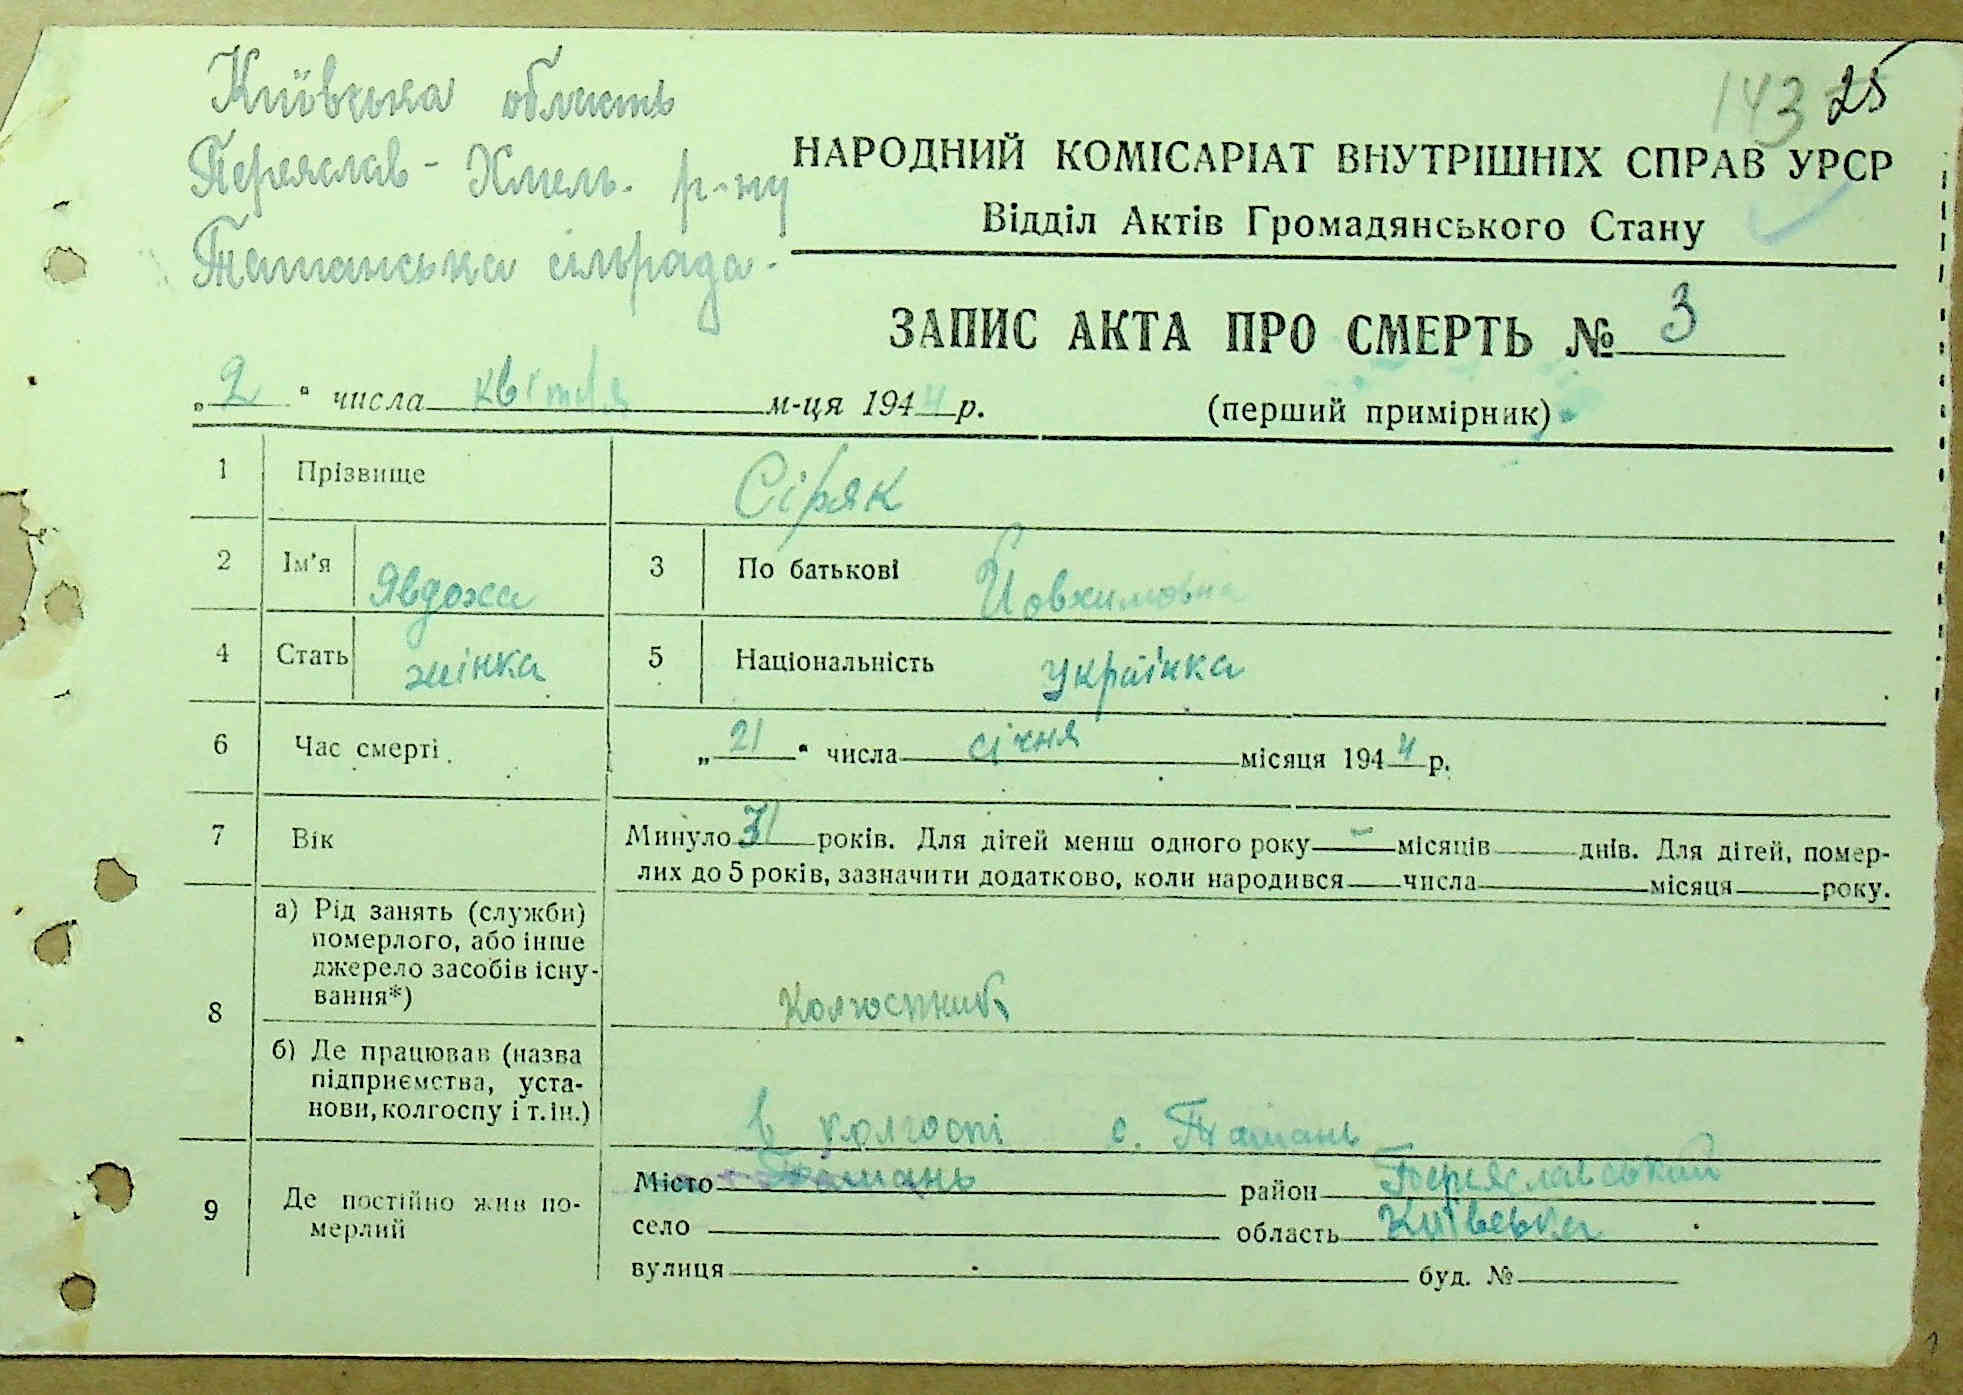 Київська область
143 25
Переяслав-Хмель. р-ну
НАРОДНИЙ КОМІСАРІАТ ВНУТРІШНІХ СПРАВ УРСР
Відділ Актів Громадянського Стану
Ташанська сільрада.
ЗАПИС АКТА ПРО СМЕРТЬ № 3
„2“ числа квітня м-ця 1944 р.
(перший примірник)
1 Прізвище Сіряк
2 Ім'я Явдоха 3 По батькові Йовхимовна
4 Стать жінка 5 Національність українка
6 Час смерті „21“ числа січня місяця 1944 р.
7 Вік Минуло 31 років. Для дітей менш одного року — місяців днів. Для дітей, помер-
лих до 5 років, зазначити додатково, коли народився числа місяця року.
8 а) Рід занять (служби)
померлого, або інше
джерело засобів існу-
вання*)
Колгоспник
б) Де працював (назва
підприємства, уста-
нови, колгоспу і т.ін.)
в колгоспі с. Ташань
9 Де постійно жив по-
мерлий
Місто Ташань район Переяславський
село область Київська
вулиця буд. №